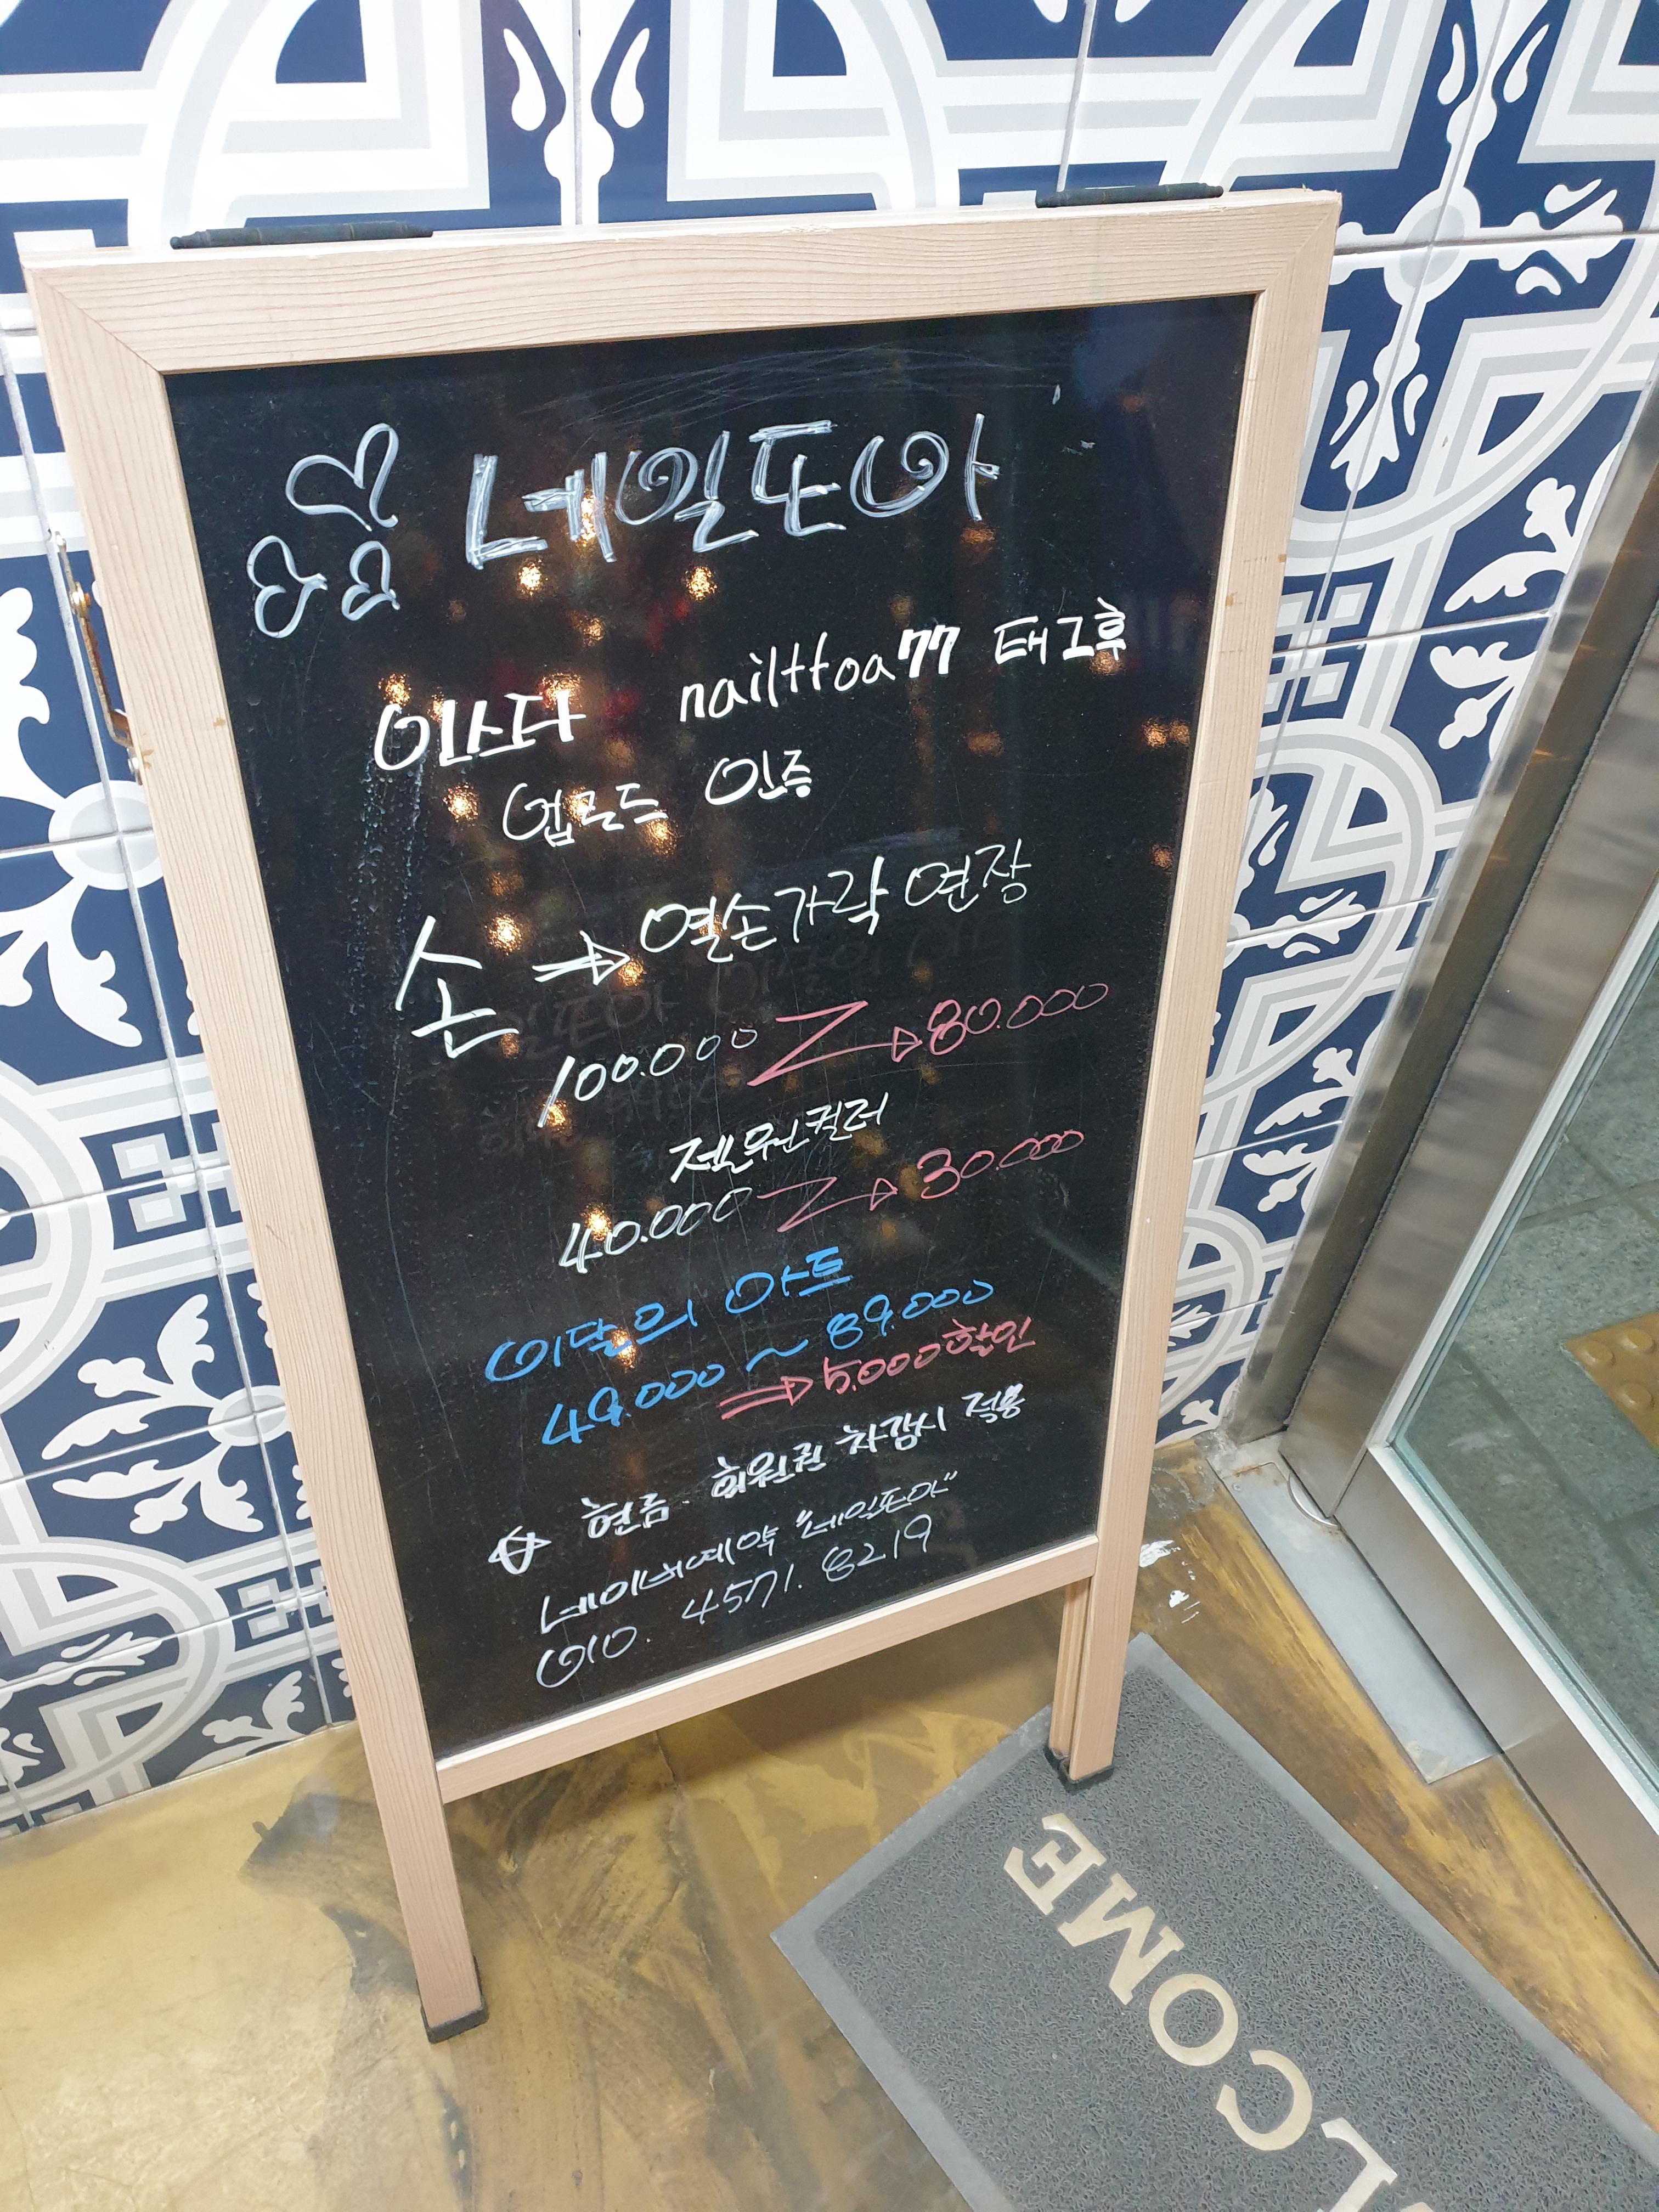 네일또아
인스타 nailttoa77 태그후
업로드 인증
손 ⇒ 열손가락 연장
100.000 → 80.000
젤원컬러
40.000 → 30.000
이달의 아트
49.000 ~ 89.000
⇒ 5.000할인
현금. 회원권 차감시 적용
네이버예약 "네일또아"
010. 4571. 8219
WELCOME